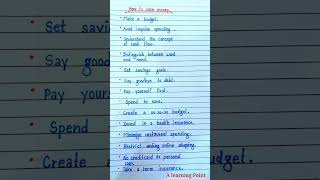 How to save money
Make a budget.
Avoid impulse spending.
Understand the concept
of cash flow.
Distinguish between want
and need.
Set savings goals.
Say goodbye to debt.
Pay yourself first.
Spend to save.
Create a budget.
Invest in a health insurance.
Minimize restaurant spending.
Restrict online shopping.
No credit card to personal
loan.
Take a term insurance.
A learning Point
Set savings
Say good
Pay yours
Spend
Create a
budget.